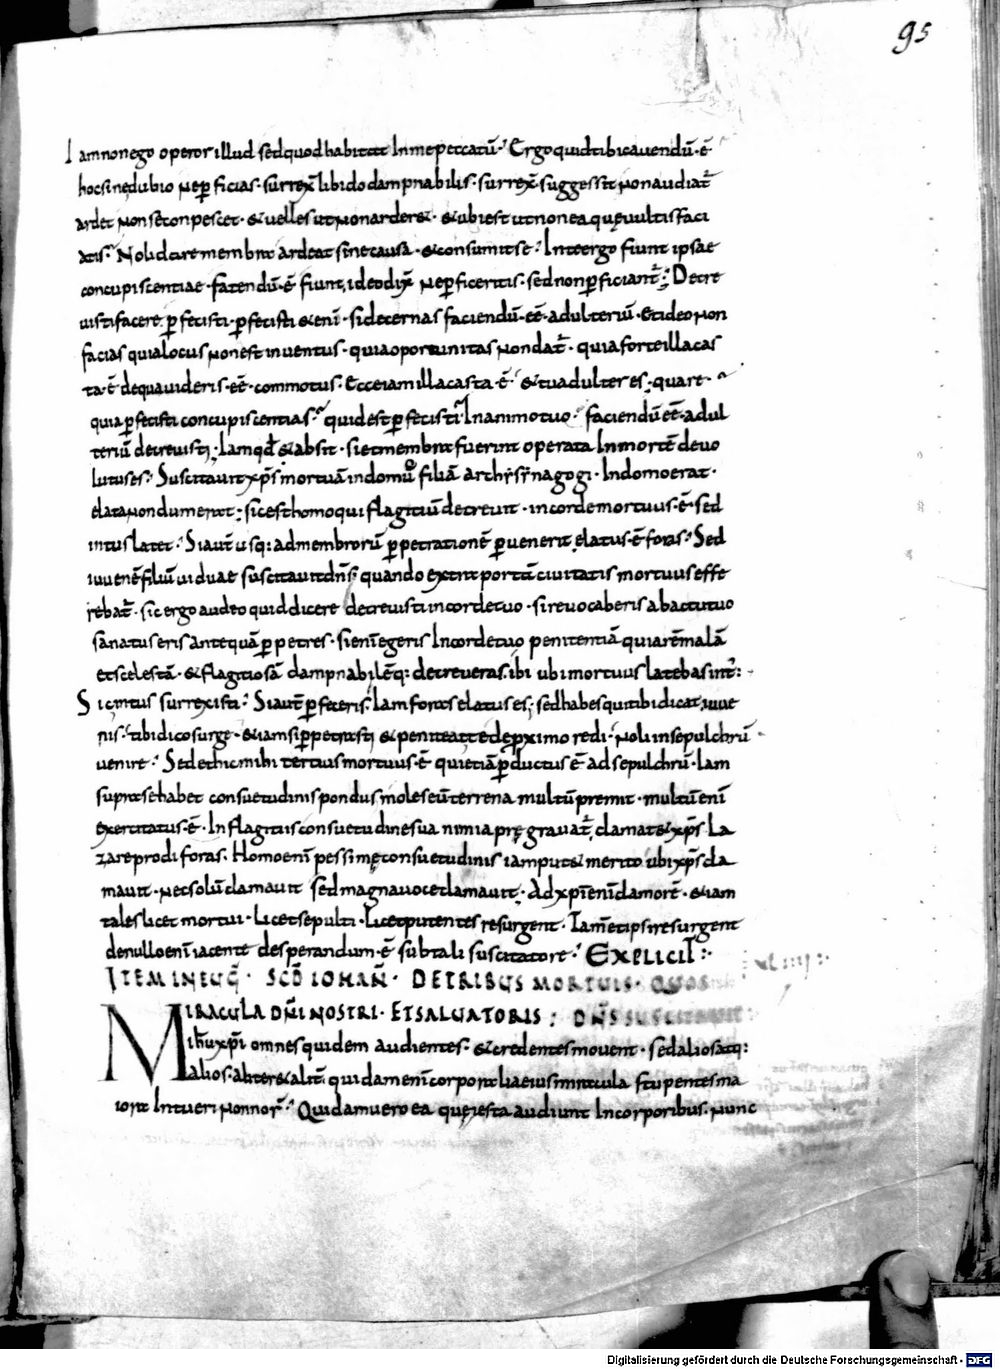 95
Iam non ego operor illud sed quod habitat In me peccatū. Ergo quid tibi cauendū·ē·
hoc sine dubio ne ꝑficias· surrex̄ libido dampnabilis· surrex̄· suggessit non audiat̄
ardet non se conpescet· & uelles ut non arder&· & ubi est ut non ea quę uultis faci
atis· Noli dare membra ardeat sine causa· & consumit se· Inte ergo fiunt ipsae
concupiscentiae· fatendū·ē· fiunt, ideo dix̄ ne ꝑficeritis· sed non ꝑficiant̄· Decre
uisti facere· ꝑfecisti· ꝑfecisti & enī· si decernas faciendū·eē· adulteriū· Et ideo non
facias quia locus non est inuentus· quia oportunitas non dat̄· quia forte illa cas
ta·ē· de qua uideris·eē· commotus· Ecce iam illa casta·ē· & tu adulter es, quare·
quia ꝑfecisti concupiscentias· quid est ꝑfecisti In animo tuo· faciendū eē· adul
teriū decreuisti, Iam qđ & absit· si et membra fuerint operata In mortē deuo
lutus es· Suscitauit xp̄s mortuā in domū filiā archysynagogi· In domo erat·
elata non dum erat; sic est homo qui flagitiū decreuit· in corde mortuus·ē· sed
intus latet· Si aut̄ usq: ad membrorū ꝑpetrationē ꝑuenerit, elatus·ē· foras· Sed
iuuenē filiū uiduae suscitauit dn̄s quando extra portā ciuitatis mortuus effe
rebat̄· sic ergo audeo quid dicere decreuisti in corde tuo· si reuocaberis ab actu tuo
sanatus eris antequā ꝑpetres· si enī egeris In corde tuo penitentiā quia rē malā
et scelestā· & flagitiosā dampnabilēq: decreueras, ibi ubi mortuus latebas int̄:
Sic intus surrexisti· Si aut̄ ꝑfeceris· Iam foras elatus es; sed habes qui tibi dicat, iuue
nis· tibi dico surge· & iam si ꝑpetrasti & peniteat te de ꝓximo redi· noli in sepulchrū
uenire· Sed et hic mihi tertius mortuus·ē· qui etiā ꝑductus ē· ad sepulchrū· Iam
supra se habet consuetudinis pondus moles eū terrena multū premit· multū enī
exercitatus·ē· In flagitiis consuetudine sua nimia pręgrauat̄, clamat & xp̄s La
zare prodi foras· Homo enī pessimę consuetudinis iam put& merito ubi xp̄s cla
mauit· nec solū clamauit sed magna uoce clamauit· Ad xp̄i enī clamorē· & iam
tales licet mortui· licet sepulti· Licet putentes resurgent· Iam & ipsi resurgent
de nullo enī iacente desperandum·ē· sub tali suscitatore· Explicit:
Item in eug̅· scd̄ Iohan̄· De tribus mortuis· quos
Miracula dn̄i nostri· et saluatoris: dn̄s suscitauit:
ih̄u xp̄i omnes quidem audientes· & credentes mouent· sed alios atq:
alios· aliter & alit̄, quidam enī corporalia eius miracula stupentes ma
iora Intueri non nor̄· Quidam uero ea quę gesta audiunt In corporibus, nunc
Digitalisierung gefördert durch die Deutsche Forschungsgemeinschaft - DFG